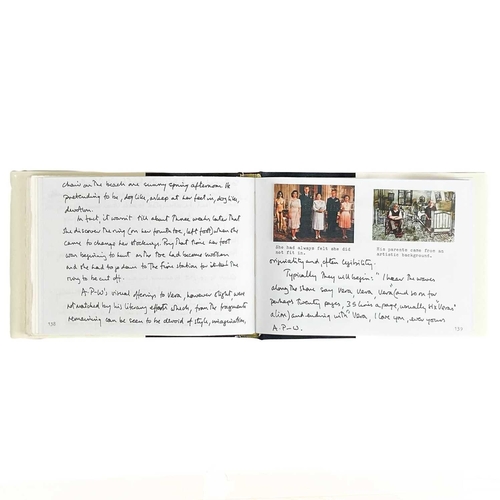 chair on the beach one sunny spring afternoon &
pretending to be, doglike, asleep at her feet in, doglike,
devotion.
In fact, it wasn't till about three weeks later that
she discovered the ring (on her fourth toe, left foot) when she
came to change her stockings. By that time her foot
was beginning to hurt as the toe had become swollen
and she had to go down to the fire station for to have the
ring to be cut off.
A.P-W's visual offerings to Vera, however slight, were
not matched by his literary efforts which, from the fragments
remaining can be seen to be devoid of style, imagination,
138
She had always felt she did
not fit in.
His parents came from an
artistic background.
originality and often legibility.
Typically they will begin: "I hear the waves
along the shore say Vera, Vera, Vera (and so on for
perhaps twenty pages, 35 lines a page, usually 4 "Veras"
a line) and ending with "Vera, I love you, ever yours
A.P-W.
139